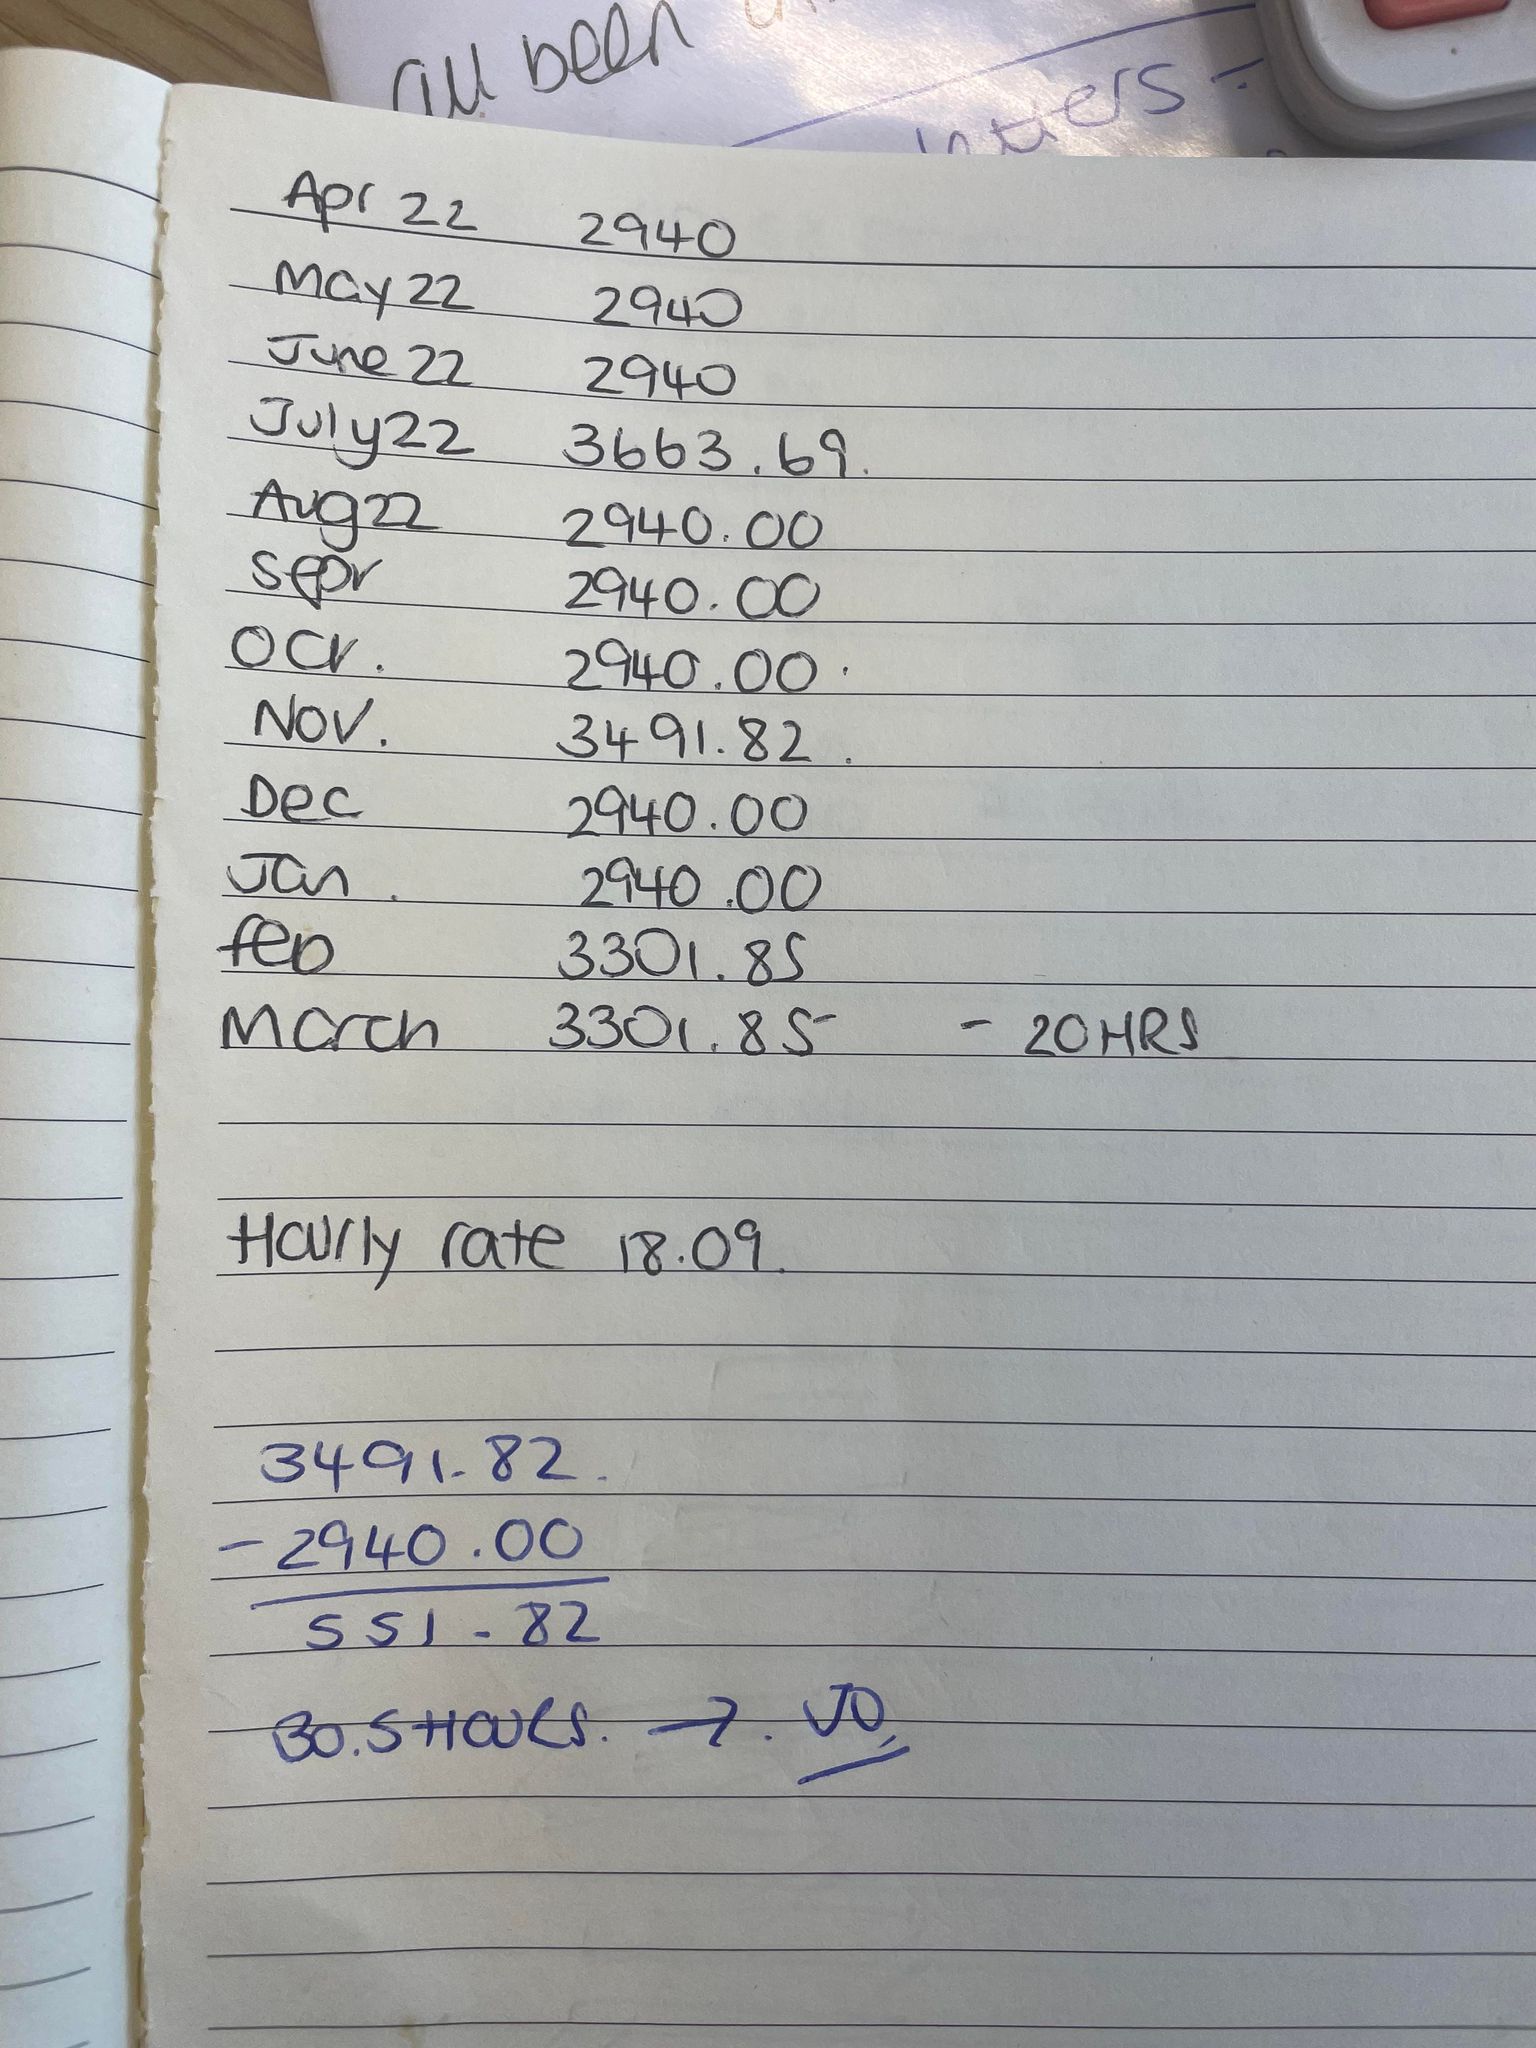 all been
Apr 22 2940
May 22 2940
June 22 2940
July 22 3663.69.
Aug 22 2940.00
Sept 2940.00
Oct. 2940.00.
Nov. 3491.82.
Dec 2940.00
Jan. 2940.00
feb 3301.85
March 3301.85 - 20 HRS
Hourly rate 18.09.
3491.82.
- 2940.00
551.82
30.5 Hours. →. JO